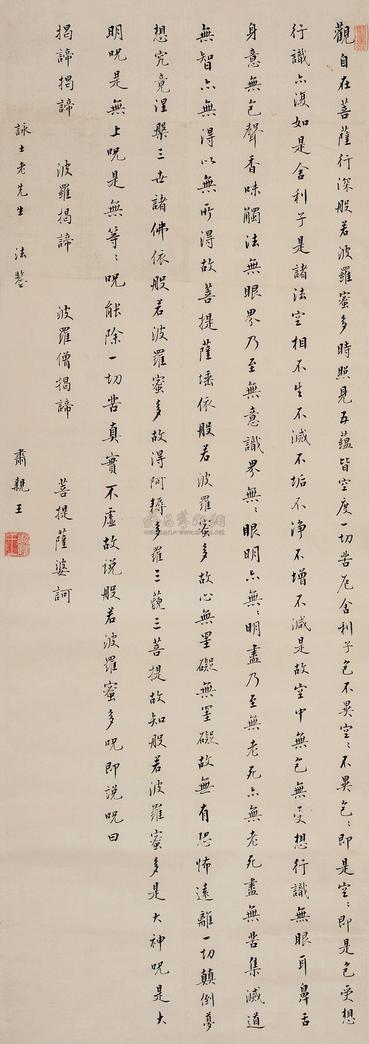 觀自在菩薩行深般若波羅蜜多時照見五蘊皆空度一切苦厄舍利子色不異空〻不異色〻即是空〻即是色受想
行識亦復如是舍利子是諸法空相不生不滅不垢不淨不增不減是故空中無色無受想行識無眼耳鼻舌
身意無色聲香味觸法無眼界乃至無意識界無〻眼明亦無〻明盡乃至無老死亦無老死盡無苦集滅道
無智亦無得以無所得故菩提薩埵依般若波羅蜜多故心無罣礙無罣礙故無有恐怖遠離一切顛倒夢
想究竟涅槃三世諸佛依般若波羅蜜多故得阿耨多羅三藐三菩提故知般若波羅蜜多是大神咒是大
明咒是無上咒是無等〻咒能除一切苦真實不虛故說般若波羅蜜多咒即說咒曰
揭諦揭諦 波羅揭諦 波羅僧揭諦 菩提薩婆訶
詠士老先生 法鑒 肅親王